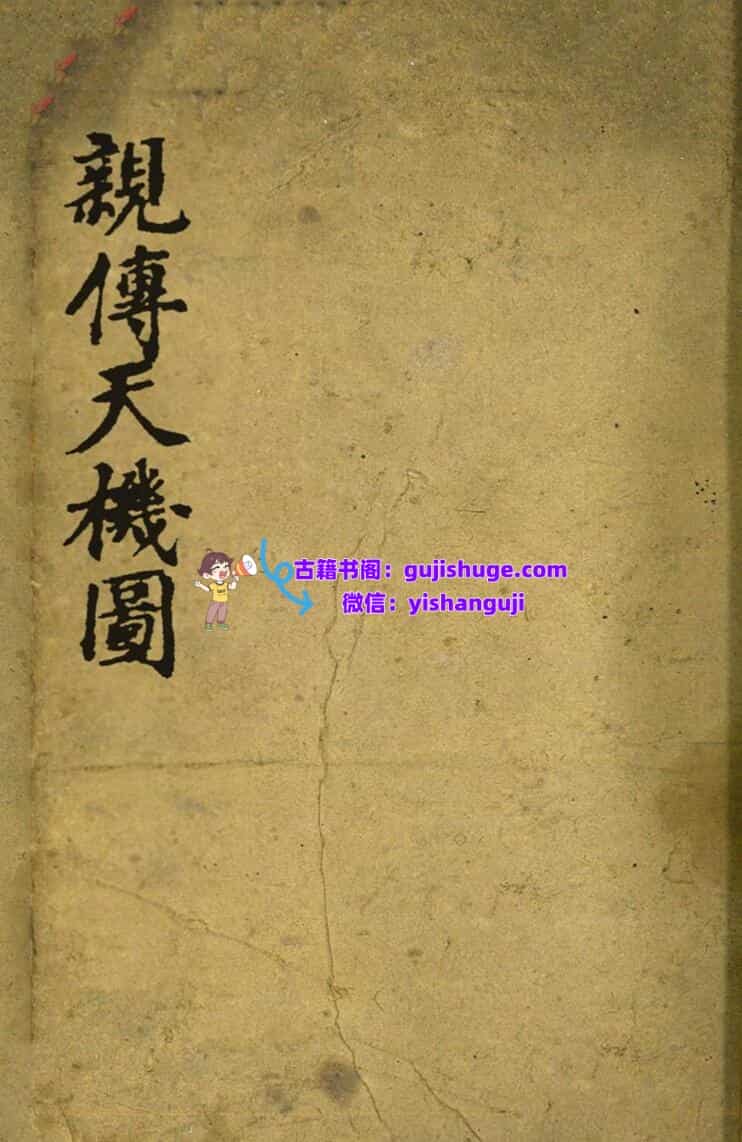 親傳天機圖
古籍书阁：gujishuge.com
微信：yishanguji